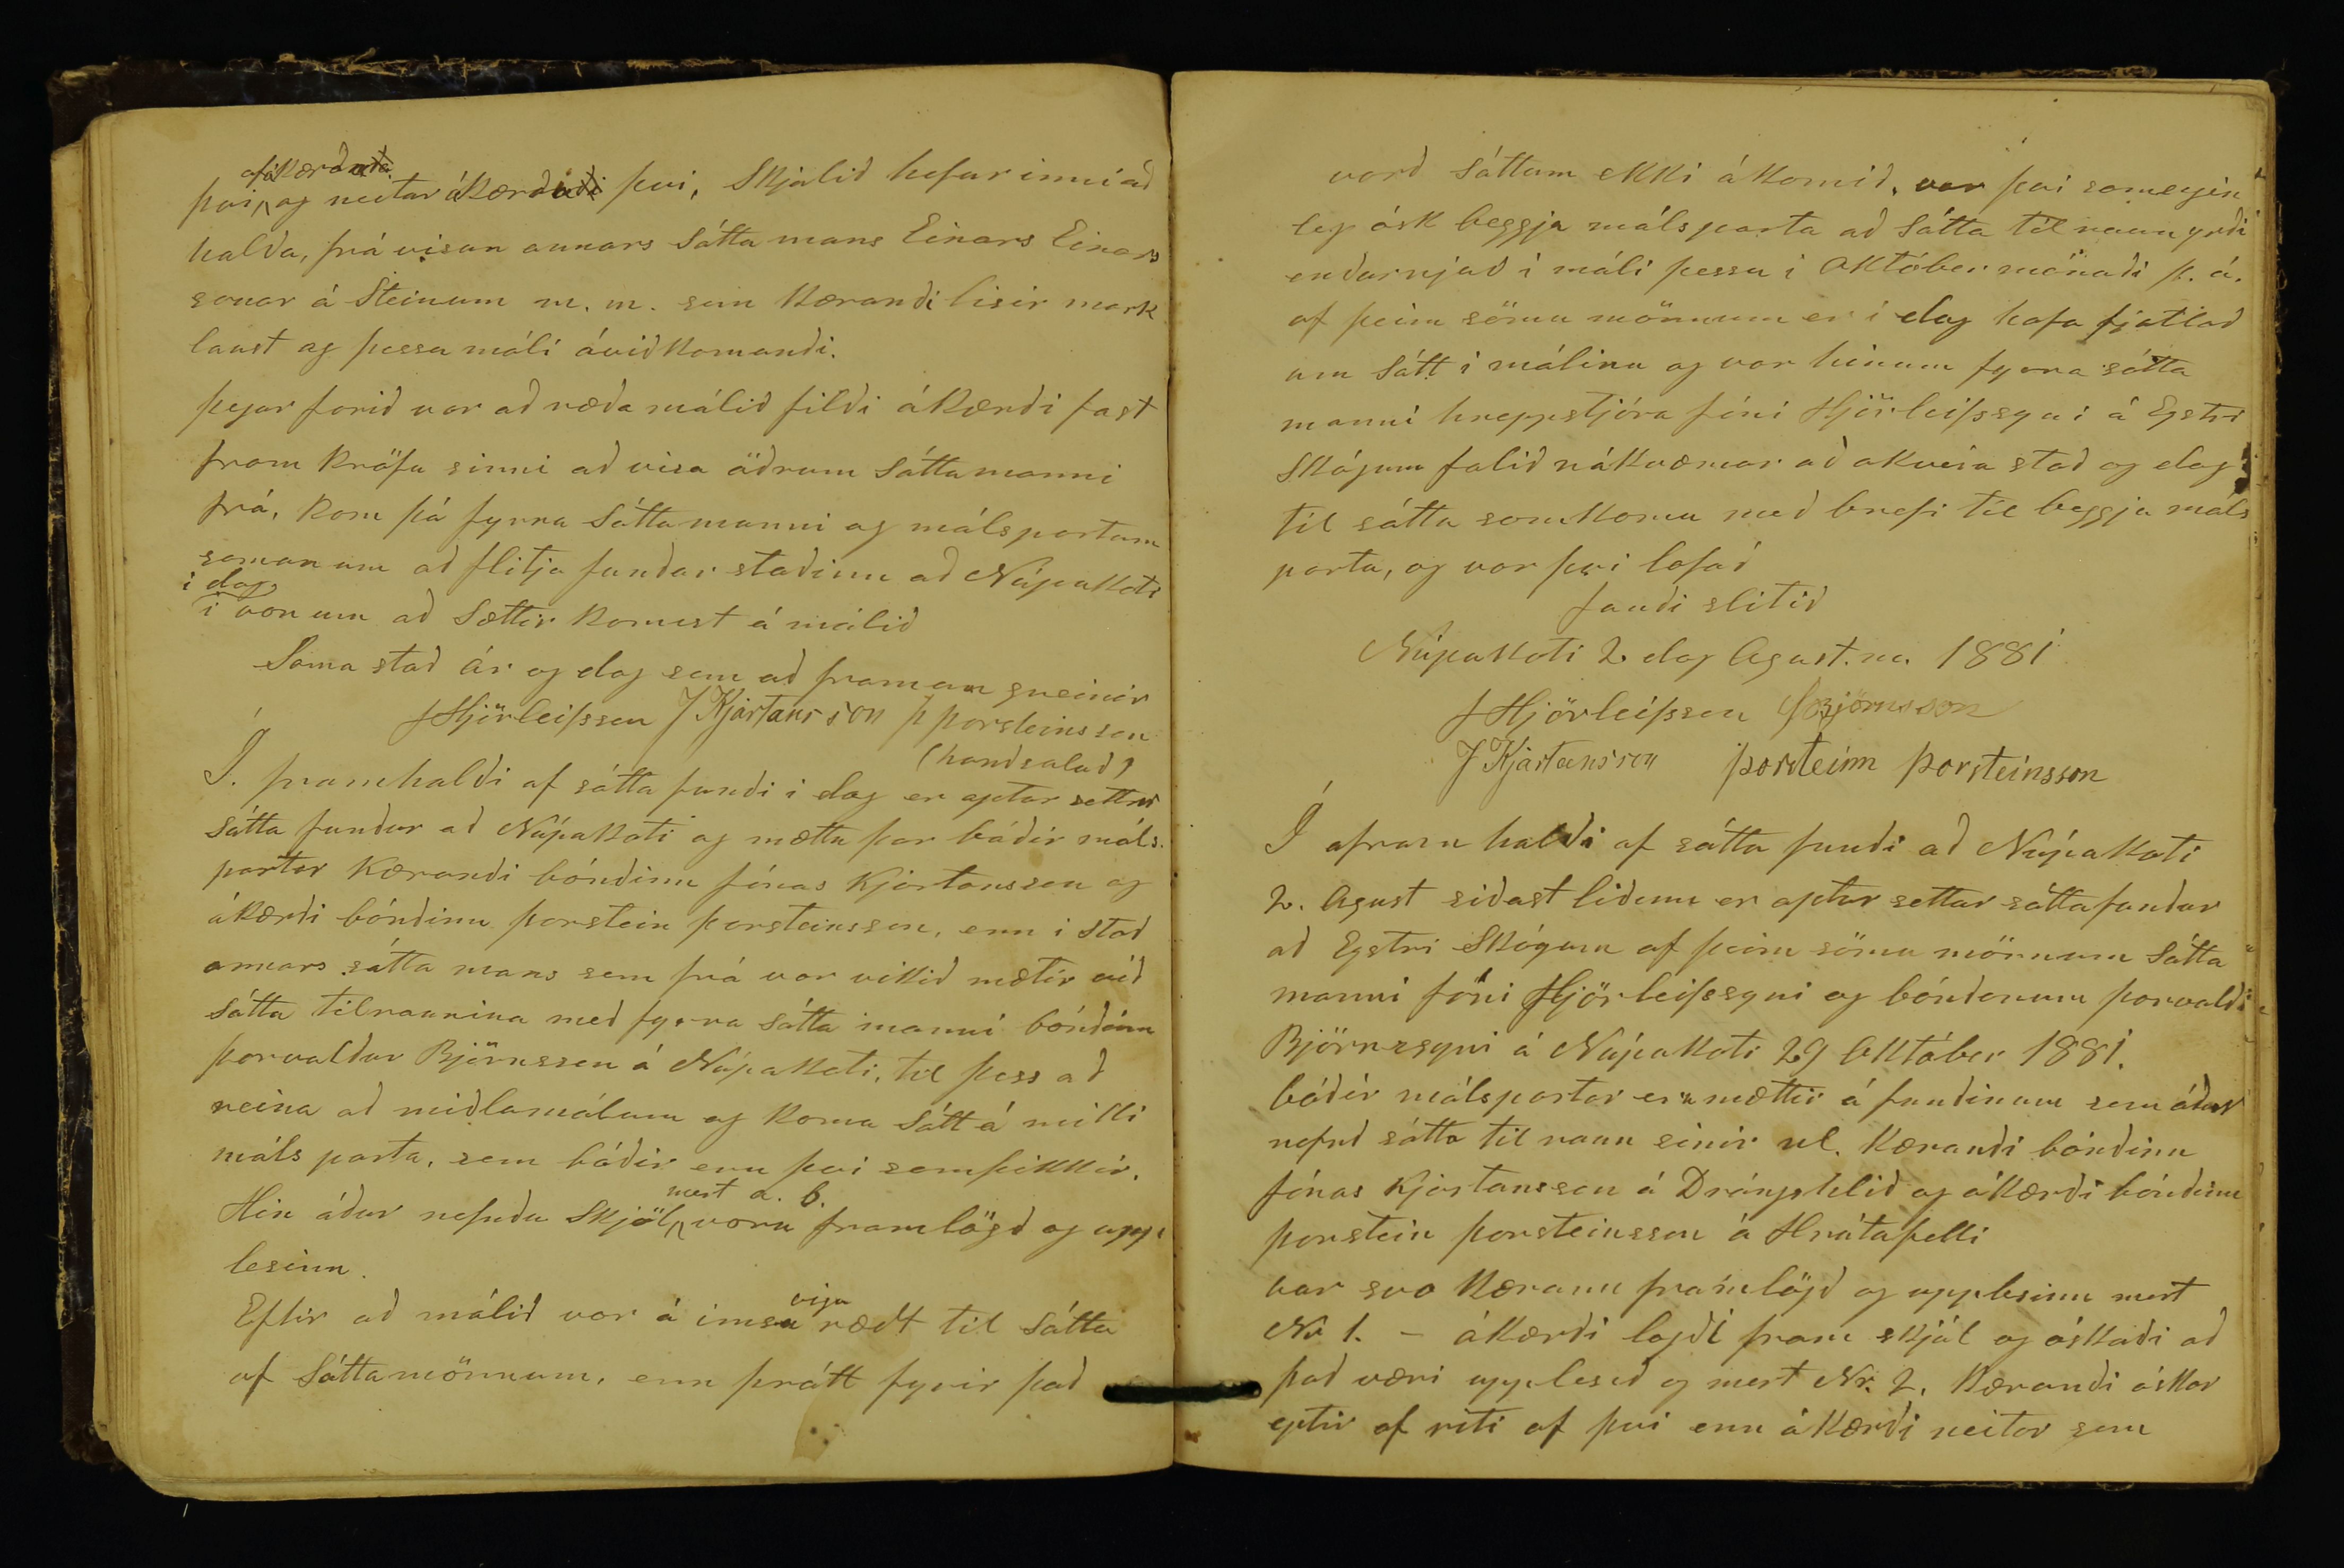 af ákærða
því, og neitar ákærði því, Skjalið hefur inni að
halda, frá visan annars Sátta mans Einars Einars
sonar á Steinum m. m. sem kærandi lisir mark
laust og þessu máli áviðkomandi.
þegar farið var að ræða málið fildi ákærði fast
fram kröfu sinni að visa öðrum Sáttamanni
frá, kom þá fyrra Sáttamanni og málspörtum
saman um að flitja fundar staðinn að Núpakoti
i dag
i von um að Sættir komist á málið
Sama stað ár og dag sem að framan greinir
JHjörleifsson JKjartansson þ þorsteinsson
(handsalað)
Í. framhaldi af sátta fundi i dag er aptur settur
Sátta fundur að Núpakoti og mættu þar báðir máls.
partar kærandi bóndinn Jónas Kjartansson og
ákærði bóndinn þorstein þorsteinsson, enn i stað
annars sátta mans sem frá var vikið mætir við
Sátta tilraunina með fyrra Sátta manni bóndinn
þorvaldur Björnsson á Núpakoti, til þess að
reina að miðlamálum og koma Sátt á milli
máls parta, sem báðir eru því samþikkir.
mert a. b.
Hin áður nefndu Skjöl voru framlögð og upp
lesinn.
viga
Eftir að málið var á imsa rædt til Sátta
af Sáttamönnum, enn þrátt fyrir það
varð Sáttum ekki ákomið, var því sameigin
leg ósk beggja málsparta að Sátta tilraun yrði
endurnjað i máli þessu i Október mánaði þ. á.
af þeim sömu mönnum er i dag hafa fjallað
um Sátt i málinu og var hinum fyrra sátta
manni hreppstjóra Jóni Hjörleifssyni á Eystri
Skógum falið nákvæmar að akveða stað og dag
til sátta samkomu með brefi til beggja máls
parta, og var þvi lofað
fundi slitið
Núpakoti 2. dag Agust. m. 1881
JHjörleifsson þBjörnsson
JKjartansson þorsteinn þorsteinsson
Í afram haldi af sátta fundi að Núpakoti
2. Agust siðast liðnum er aptur settur sáttafundur
að Eystri Skógum af þeim sömu mönnum Sátta
manni Jóni Hjörleifssyni og bóndanum þorvaldi
Björnssyni á Núpakoti 29 Október 1881.
báðir málspartar eru mættir á fundinum sem áður
nefnd sátta til raun sinir nl. kærandi bóndinn
Jónas Kjartansson á Drángshlið og ákærði bóndinn
þorstein þorsteinsson á Hrútafelli
var svo kærann framlögð og upplesinn mert
No 1. – ákærði lagði fram skjal og óskaði að
það væri upplesið og mert Nr. 2. kærandi óskar
eptir af riti af því enn ákærði neitar sem